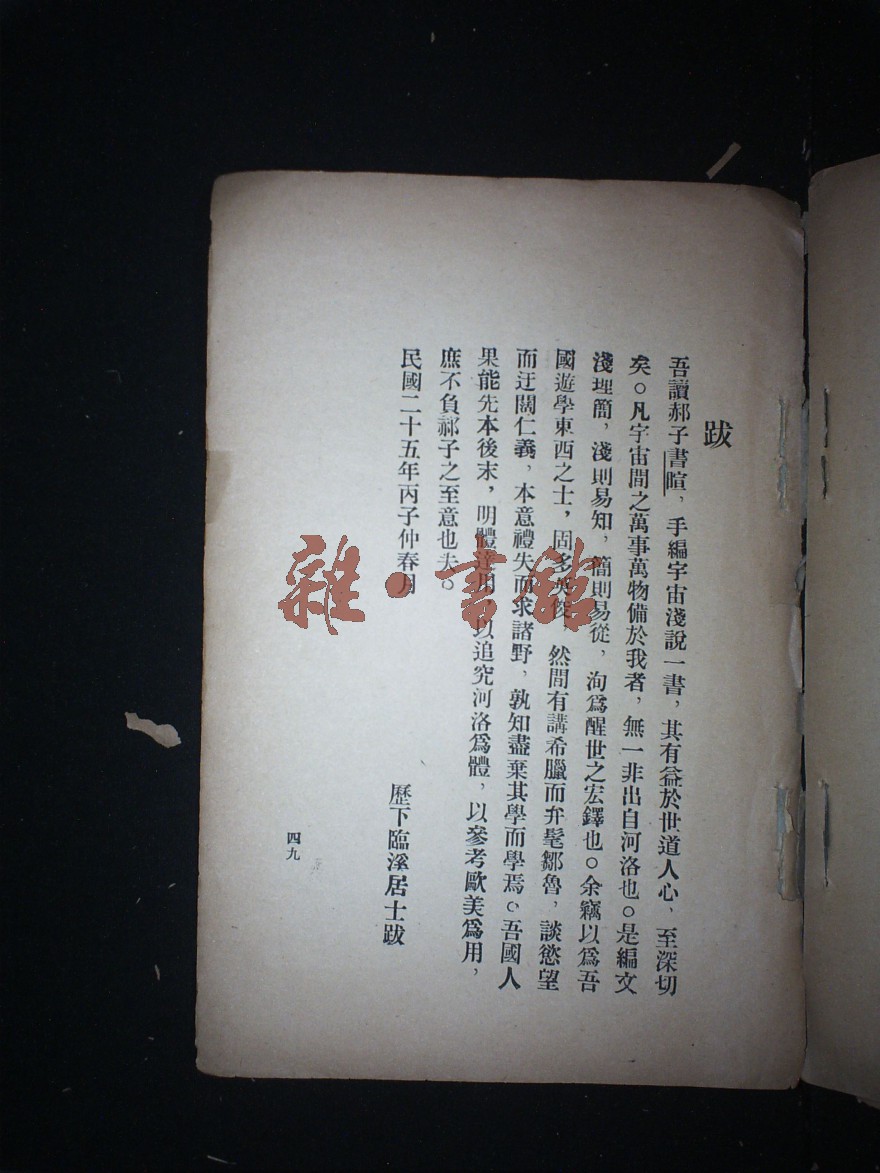 跋
吾讀郝子書暄，手編宇宙淺說一書，其有益於世道人心，至深切
矣。凡宇宙間之萬事萬物備於我者，無一非出自河洛也。是編文
淺理簡，淺則易知，簡則易從，洵爲醒世之宏鐸也。余竊以爲吾
國遊學東西之士，固多英俊，然間有講希臘而弁髦鄒魯，談慾望
而迂闊仁義，本意禮失而求諸野，孰知盡棄其學而學焉。吾國人
果能先本後末，明體達用，以追究河洛爲體，以參考歐美爲用，
庶不負郝子之至意也夫。
民國二十五年丙子仲春月
歷下臨溪居士跋
四九
雜·書館